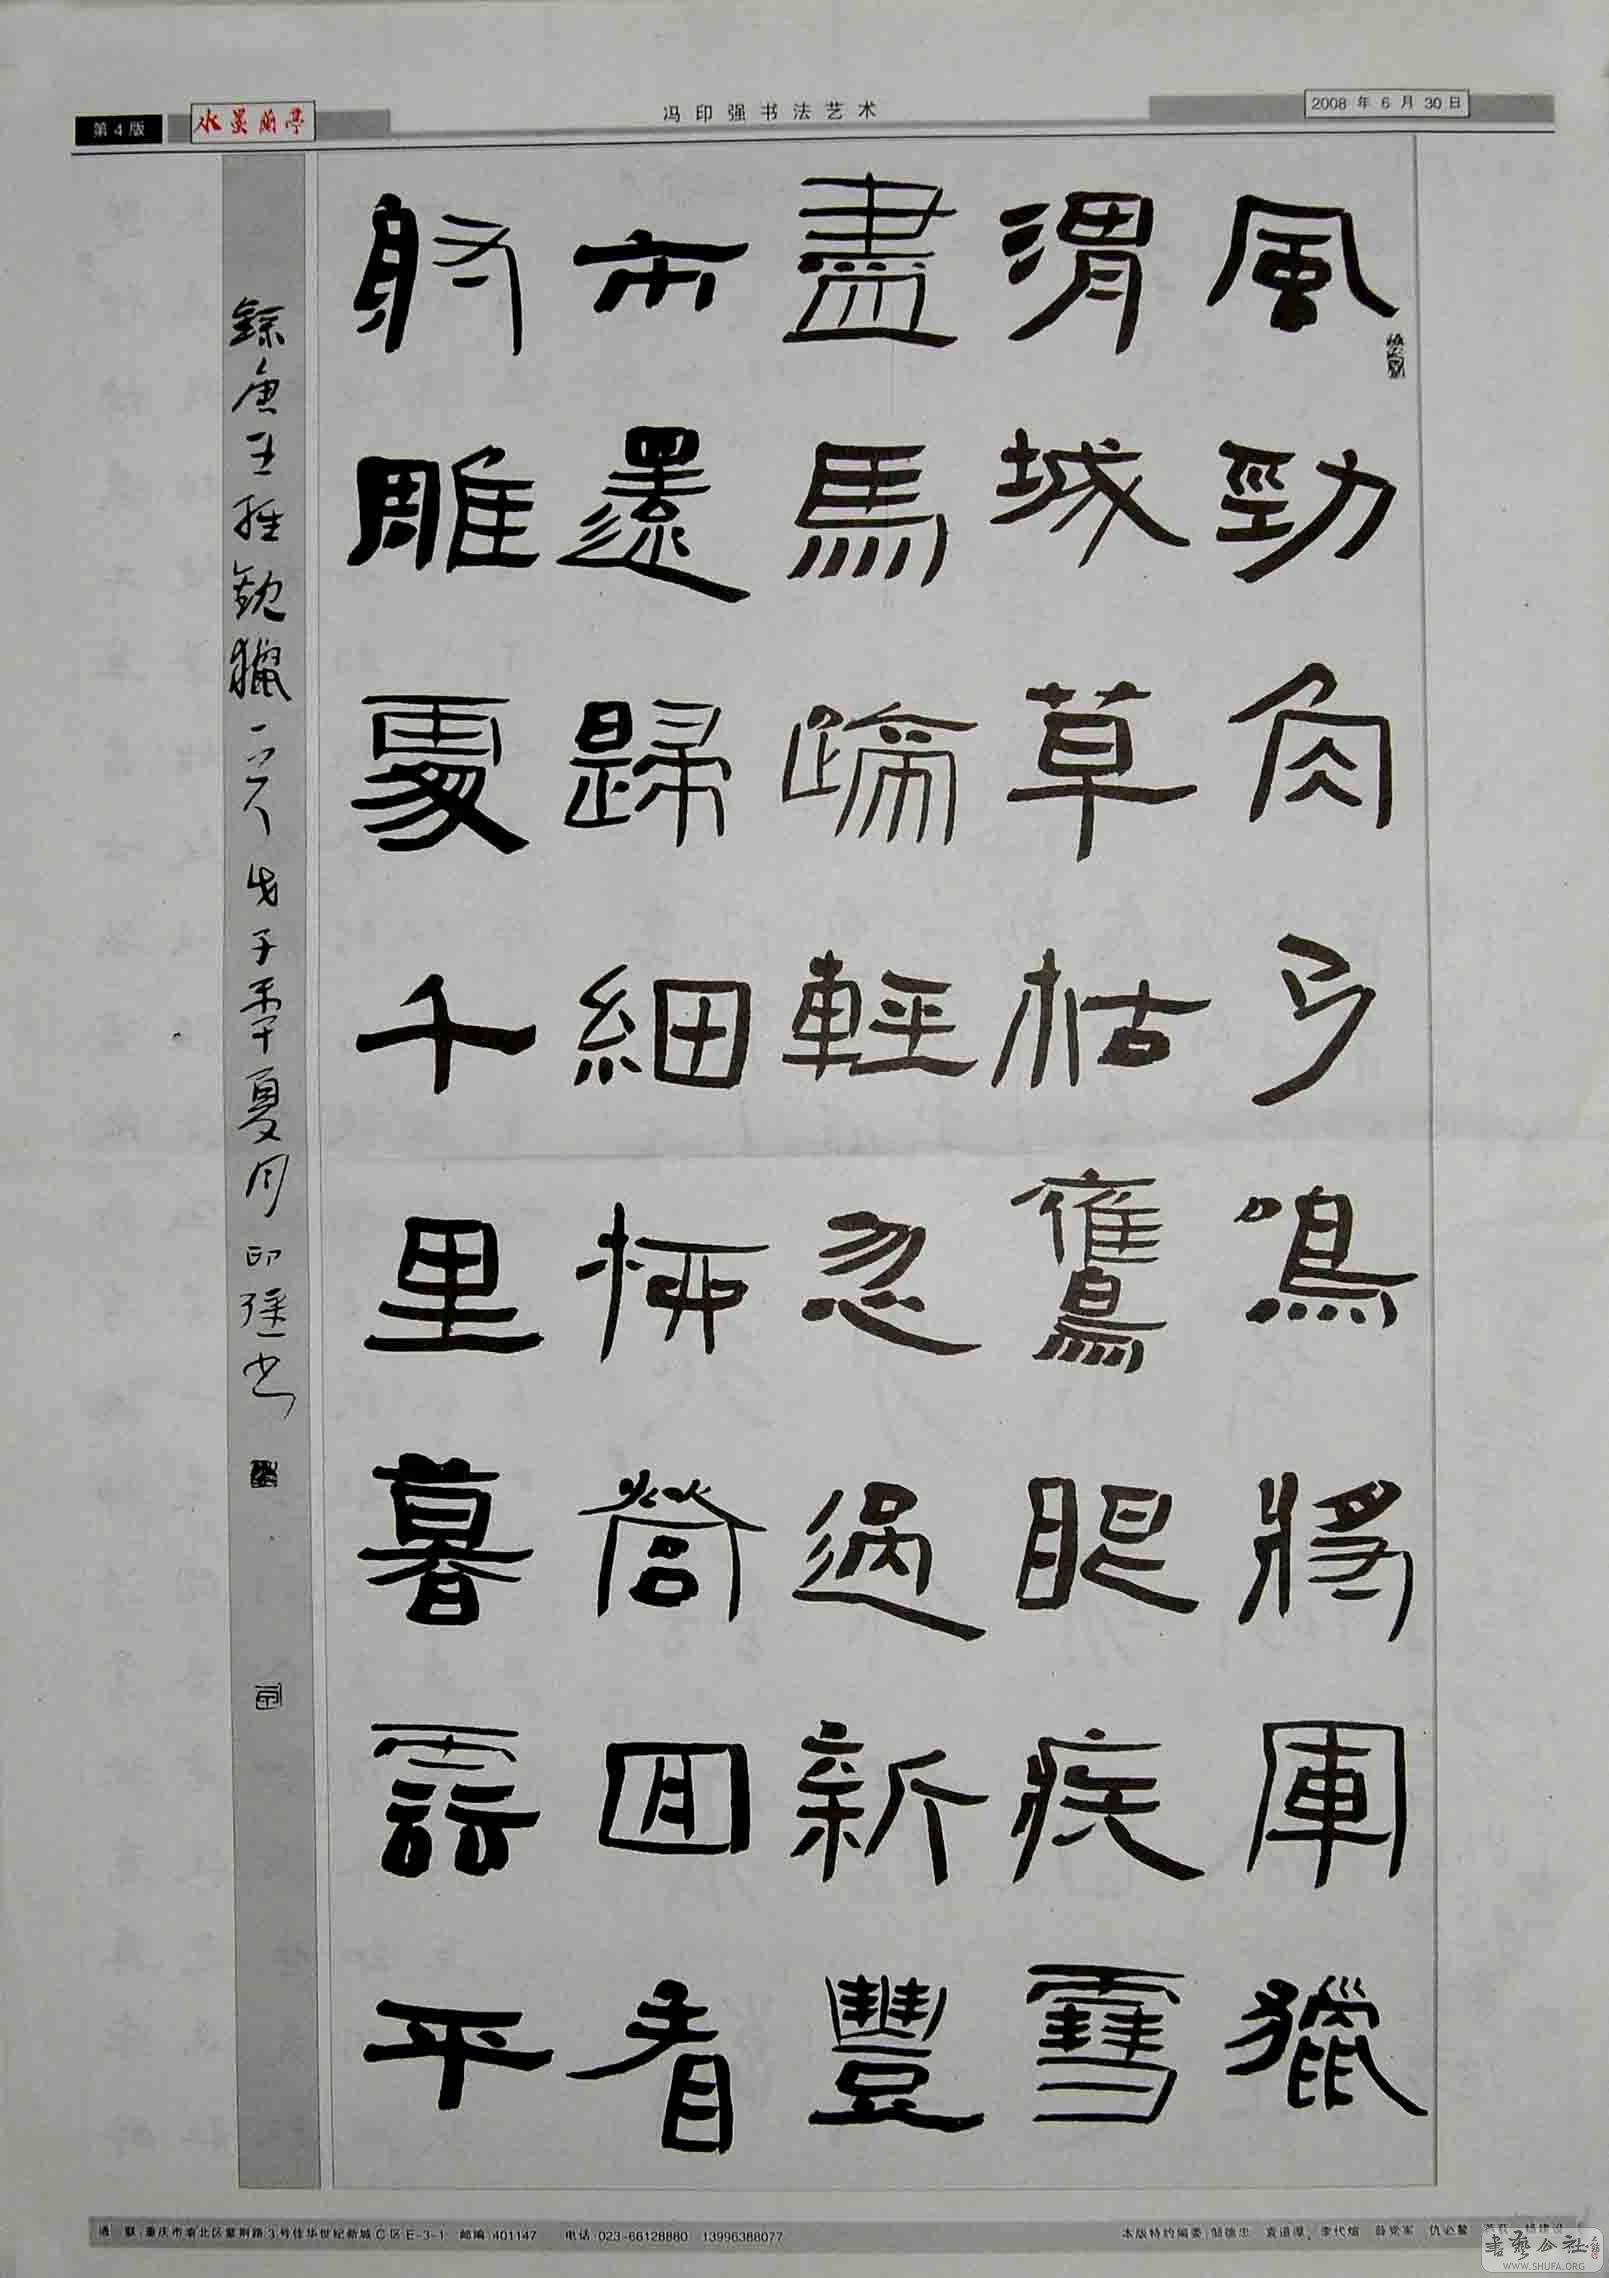 第4版
水墨蘭亭
冯印强书法艺术
2008年6月30日
風勁角弓鳴將軍獵
渭城草枯鷹眼疾雪
盡馬蹄輕忽過新豐
市還歸細柳營回看
射雕處千里暮雲平
錄唐王維觀獵一首 戊子季夏月印强书
通联:重庆市渝北区紫荆路3号佳华世纪新城C区E-3-1 邮编:401147 电话:023-66128880 13996388077
本版特约编委:邹德忠 袁道厚、李代煊 薛党军 仇必鳌 杨建设
書藝公社
WWW.SHUFA.ORG